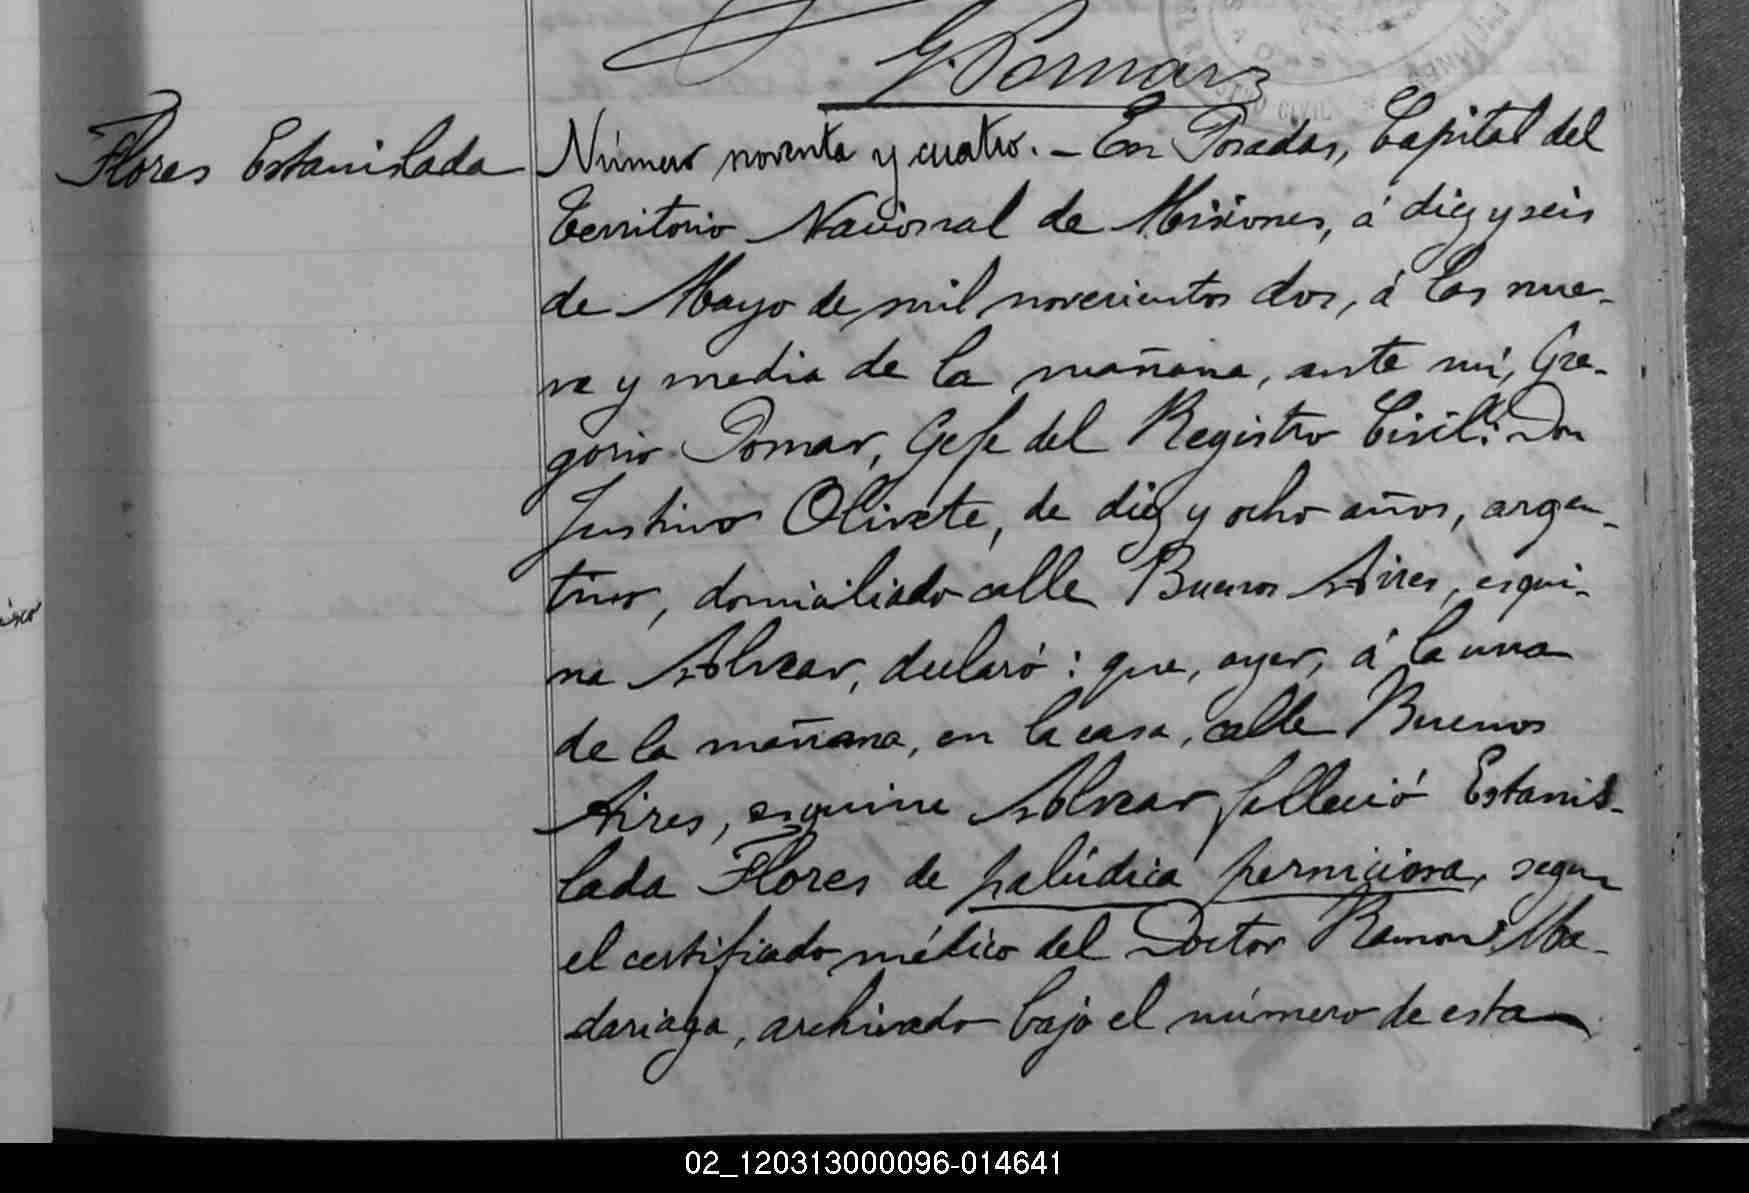 G. Pomar
Flores Estanislada
Número noventa y cuatro. - En Posadas, Capital del
Territorio Nacional de Misiones, á diez y seis
de Mayo de mil novecientos dos, á las nue-
ve y media de la mañana, ante mí, Gre-
gorio Pomar, Gefe del Registro Civil: Don
Justino Olivete, de diez y ocho años, argen-
tino, domiciliado calle Buenos Aires, esqui-
na Alvear, declaró: que, ayer, á la una
de la mañana, en la casa, calle Buenos
Aires, esquina Alvear falleció Estanis-
lada Flores de palúdica perniciosa, segun
el certificado médico del Doctor Ramon Ma-
dariaga, archivado bajo el número de esta
02_120313000096-014641